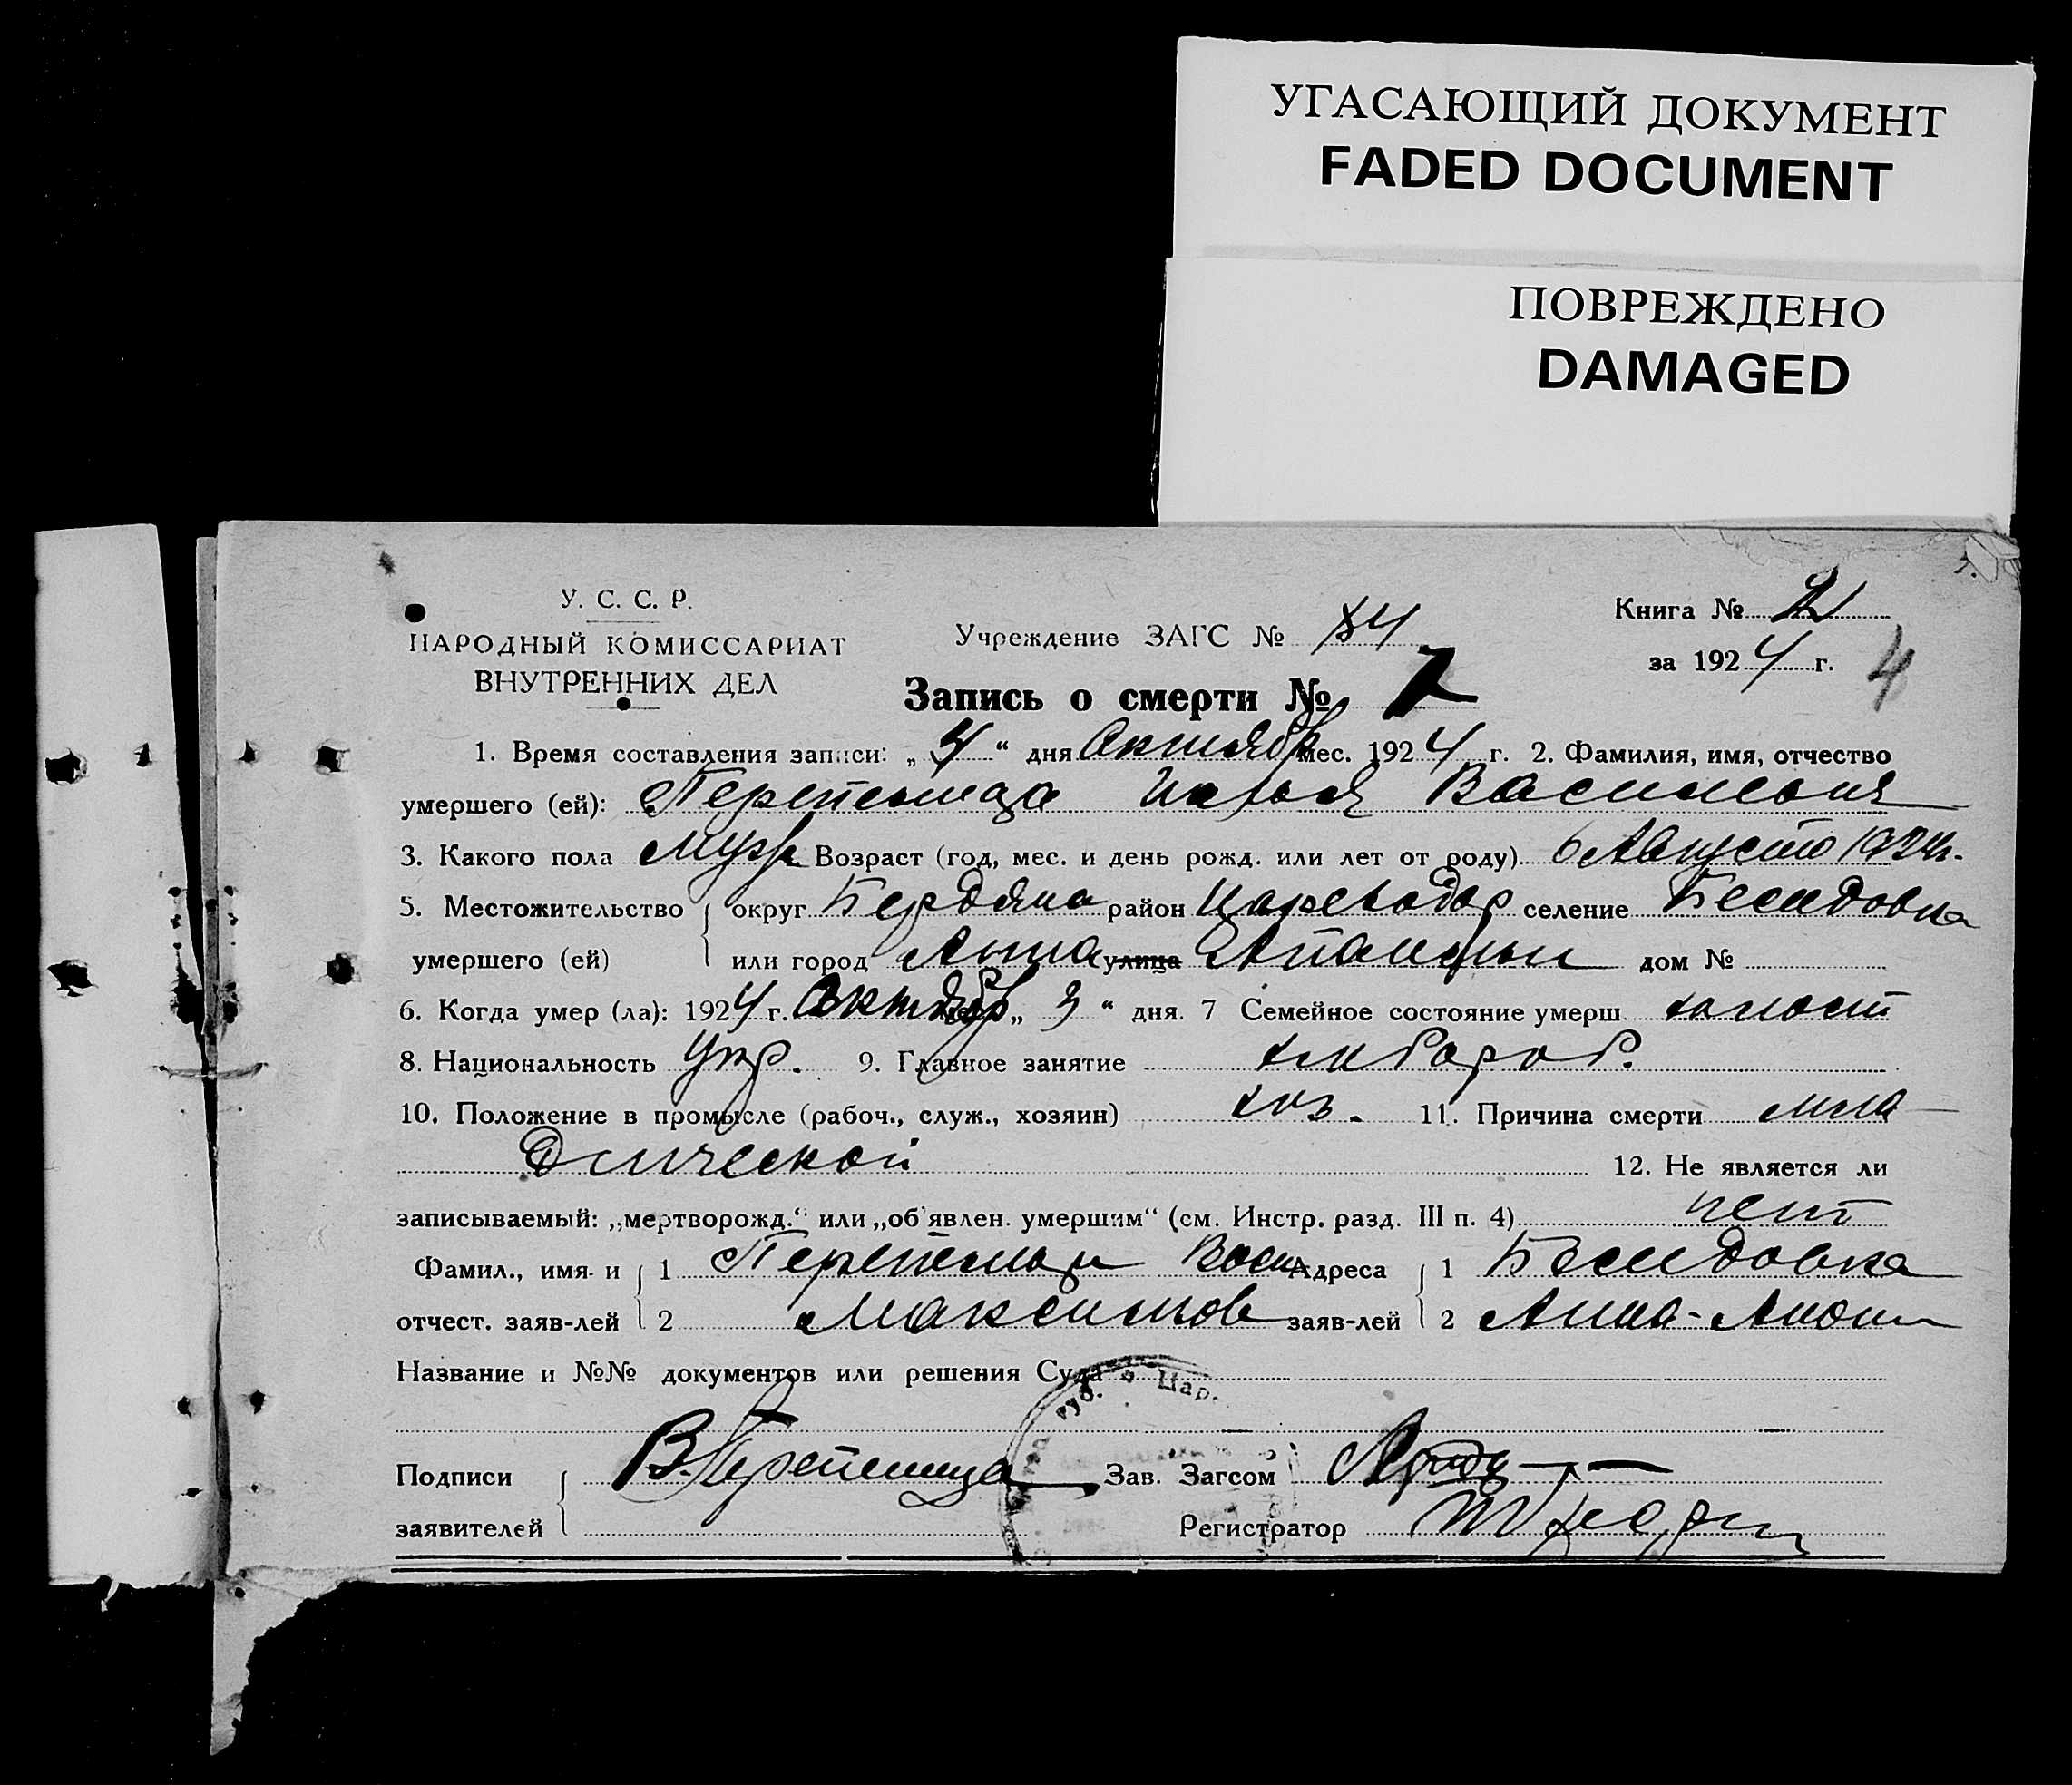 УГАСАЮЩИЙ ДОКУМЕНТ
FADED DOCUMENT
ПОВРЕЖДЕНО
DAMAGED
У. С. С. Р.
НАРОДНЫЙ КОМИССАРИАТ
ВНУТРЕННИХ ДЕЛ
Учреждение ЗАГС № 84
Книга № 2
за 1924 г. 4
Запись о смерти №
1. Время составления записи: „4“ дня Октября мес. 1924 г. 2. Фамилия, имя, отчество
умершего (ей): Перепелица Васильев
3. Какого пола Муж. Возраст (год, мес. и день рожд. или лет от роду) 6 Августа 1924 г.
5. Местожительство округ Бердянс район селение Беседовка
умершего (ей) или город Анна улица дом №
6. Когда умер (ла): 1924 г. Октябр „3“ дня. 7 Семейное состояние умерш. холост
8. Национальность Укр. 9. Главное занятие хлебороб.
10. Положение в промысле (рабоч., служ., хозяин) хоз. 11. Причина смерти мла-
денческой 12. Не является ли
записываемый: „мертворожд.“ или „об'явлен. умершим“ (см. Инстр. разд. III п. 4) нет
Фамил., имя и 1 Перепелица Васи Адреса 1 Беседовка
отчест. заяв-лей 2 Максимов заяв-лей 2 Анна-
Название и №№ документов или решения Суда
губ. Цар.
Подписи В. Перепелица Зав. Загсом
заявителей Регистратор